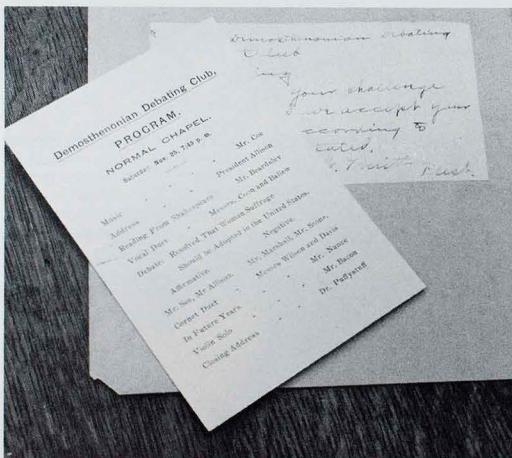 Demosthenonian Debating Club,
PROGRAM.
NORMAL CHAPEL.
Saturday, Nov. 25, 7:45 p. m.
Music - - Mr. Cox
Address - - President Allison
Reading From Shakespeare - Mr. Beardsley
Vocal Duet - Messrs. Coon and Ballew
Debate: Resolved That Woman Suffrage
Should be Adopted in the United States.
Affirmative. Negative.
Mr. See, Mr Allison. Mr. Marshall, Mr. Stone.
Cornet Duet - Messrs Wilson and Davis
In Future Years. - - Mr. Nance
Violin Solo - - Mr. Bacon
Closing Address - - Dr. Puffystuff
Demosthenonian Debating
Club
your challenge
we accept your
according to
Pres.